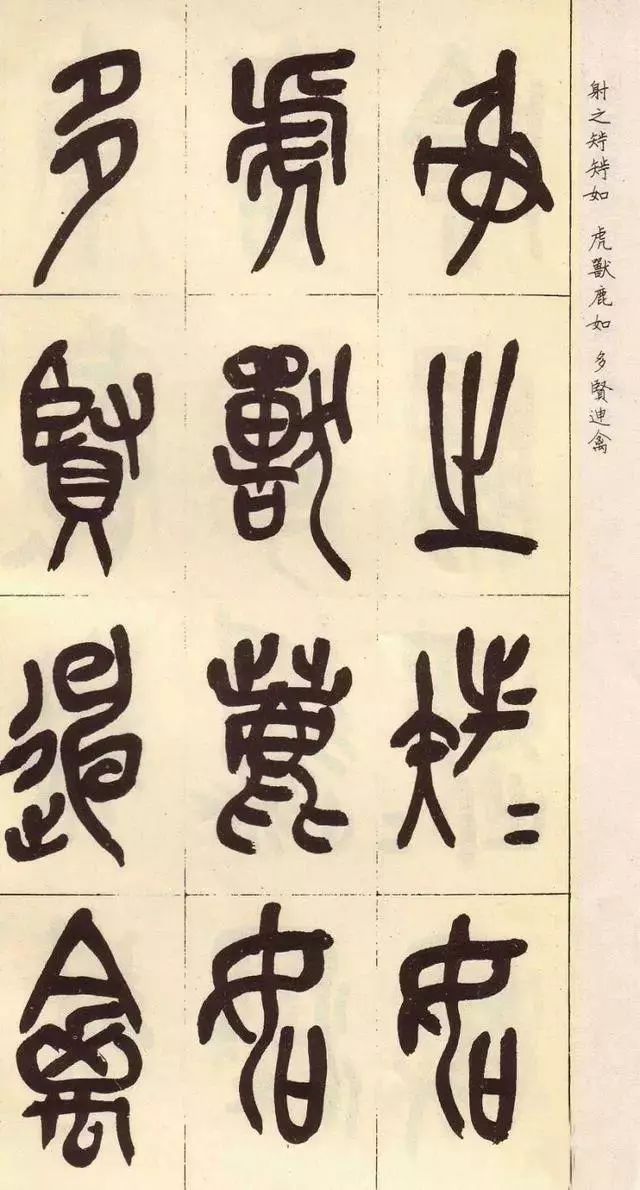 射之如 虎獸鹿如 多賢迪禽
射之如
虎獸鹿如
多賢迪禽